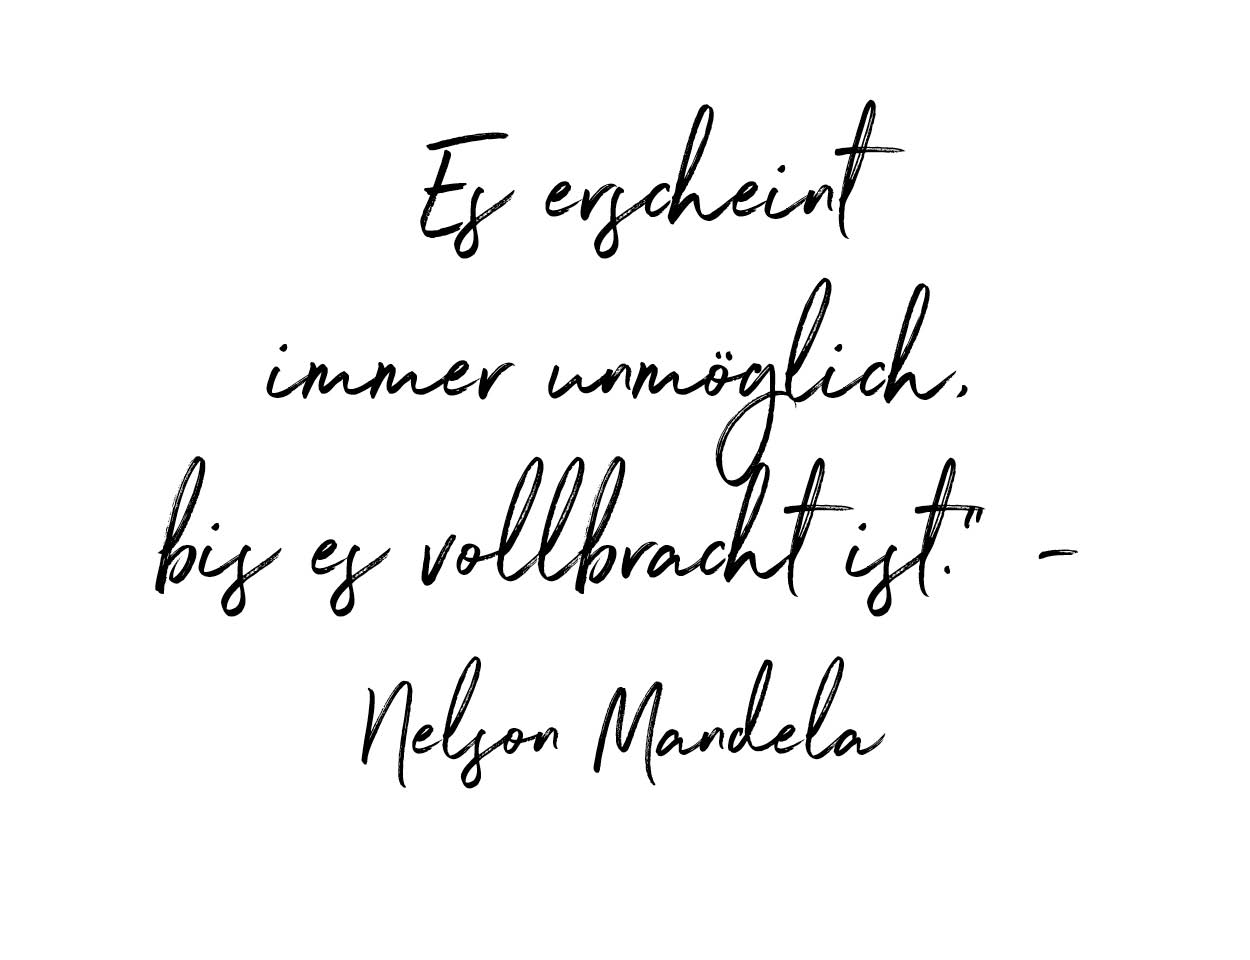 Es erscheint
immer unmöglich,
bis es vollbracht ist." -
Nelson Mandela